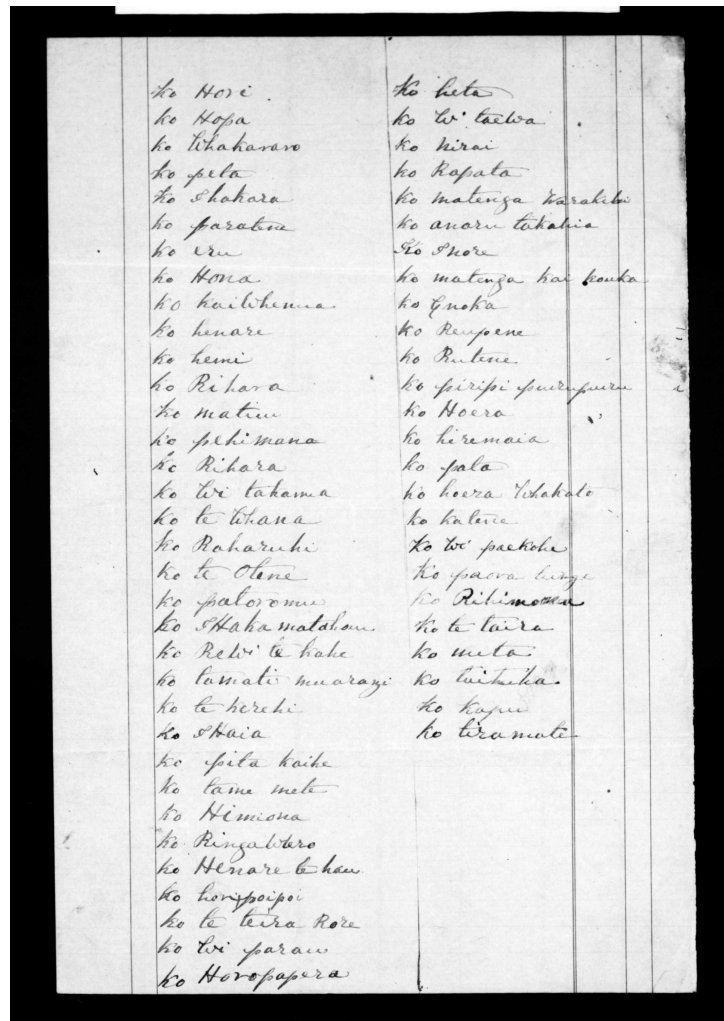 ko Hori
ko Hopa
ko Whakararo
ko peta
ko Ihakara
ko paratene
ko eru
ko Hona
ko kaiWhenua
ko henare
ko hemi
ko Rihara
ko matiu
ko pehimana
ko Rihara
ko Wi takama
ko te Whana
ko Raharuhi
ko te Otene
ko patoromu
ko IHaka matahau
ko ReWi te kahe
ko tamati muarangi
ko te herehi
ko IHaia
ko pita kaihe
ko tame mete
ko Himiona
ko RingaWero
ko Henare te hau
ko hori poipoi
ko te teira Rore
ko Wi parau
ko Horopapera
ko heta
ko Wi taewa
ko Nirai
ko Rapata
ko matenga
ko anaru takahia
ko Inore
ko matenga kai kouka
ko Enoka
ko Reupene
ko Rutene
ko piripi puirupuiru
ko Hoera
ko hiremaia
ko pata
ko hoera Whakato
ko katene
ko Wi paekohe
ko paora
ko Rihimona
ko te taira
ko meta
ko tuituha
ko kapu
ko tiramate